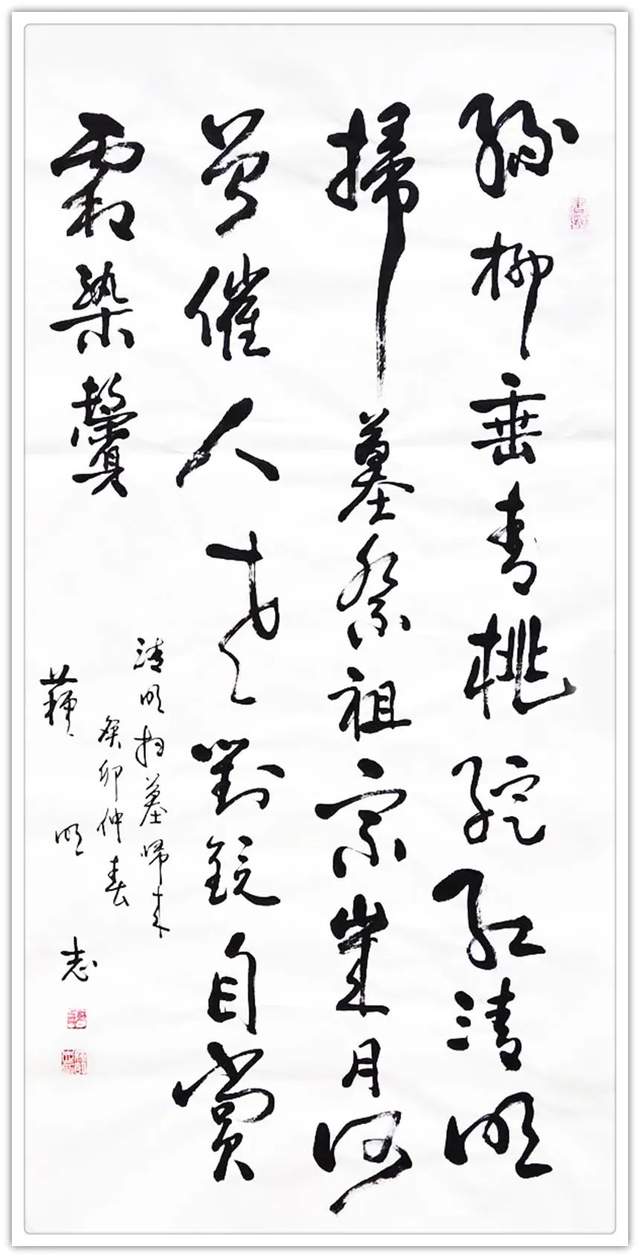 綠柳垂青桃綻紅清明
掃墓祭祖宗歲月何
曾催人老對鏡自賞
霜染鬢
清明扫墓归来
癸卯仲春
明志